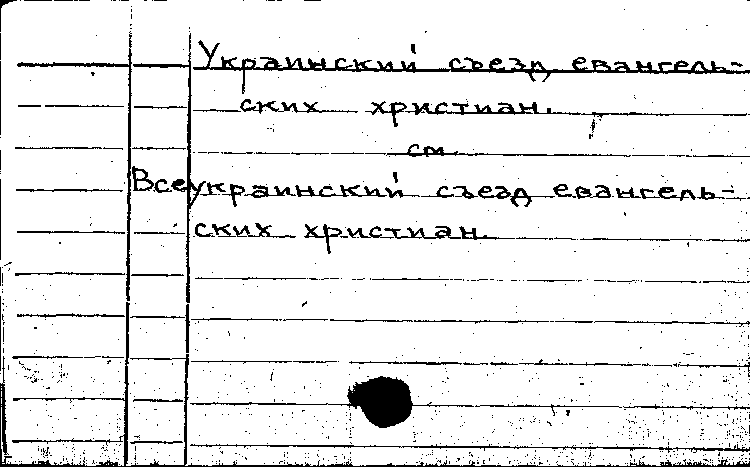 Украинский съезд евангель-
ских христиан.
см.
Всеукраинский съезд евангель-
ских христиан.